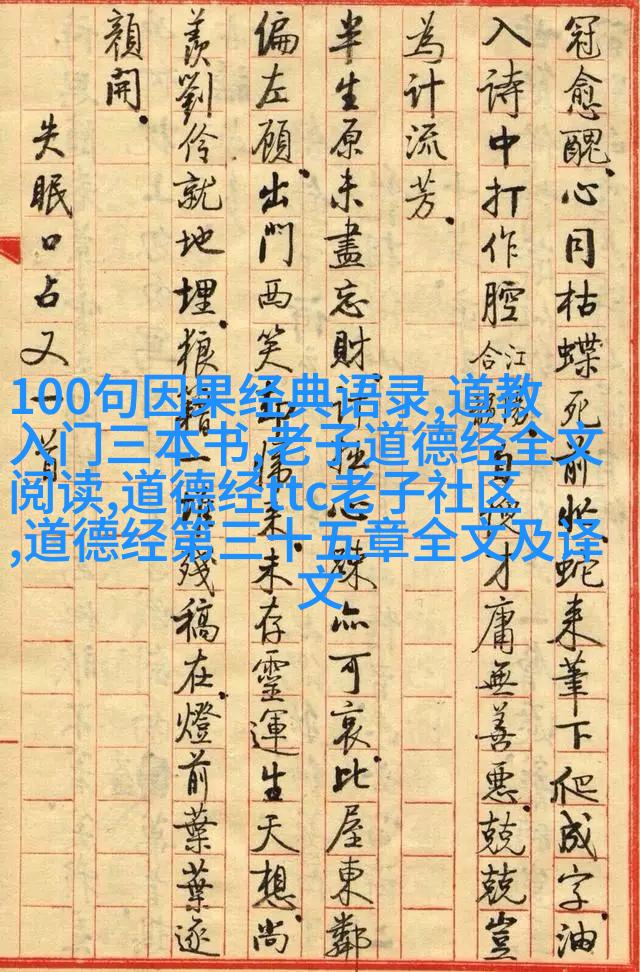 冠愈醜.心同枯蝶死前 蛇来筆下爬成字.油
入詩中打作腔 合江 自 才庸無善惡.兢兢豈
為計流芳.
半生原未盡忘財.計拙心疎亦可哀.比屋東鄰
偏左顧.出門西笑即 未.未存靈運生天想.尚
羨劉伶就地埋.狼籍一 殘稿在.燈前葉葉逐
顏開.
失眠口占又一首
100句因果经典语录,道教
入门三本书,老子道德经全文
阅读,道德经ttc老子社区
,道德经第三十五章全文及译
文